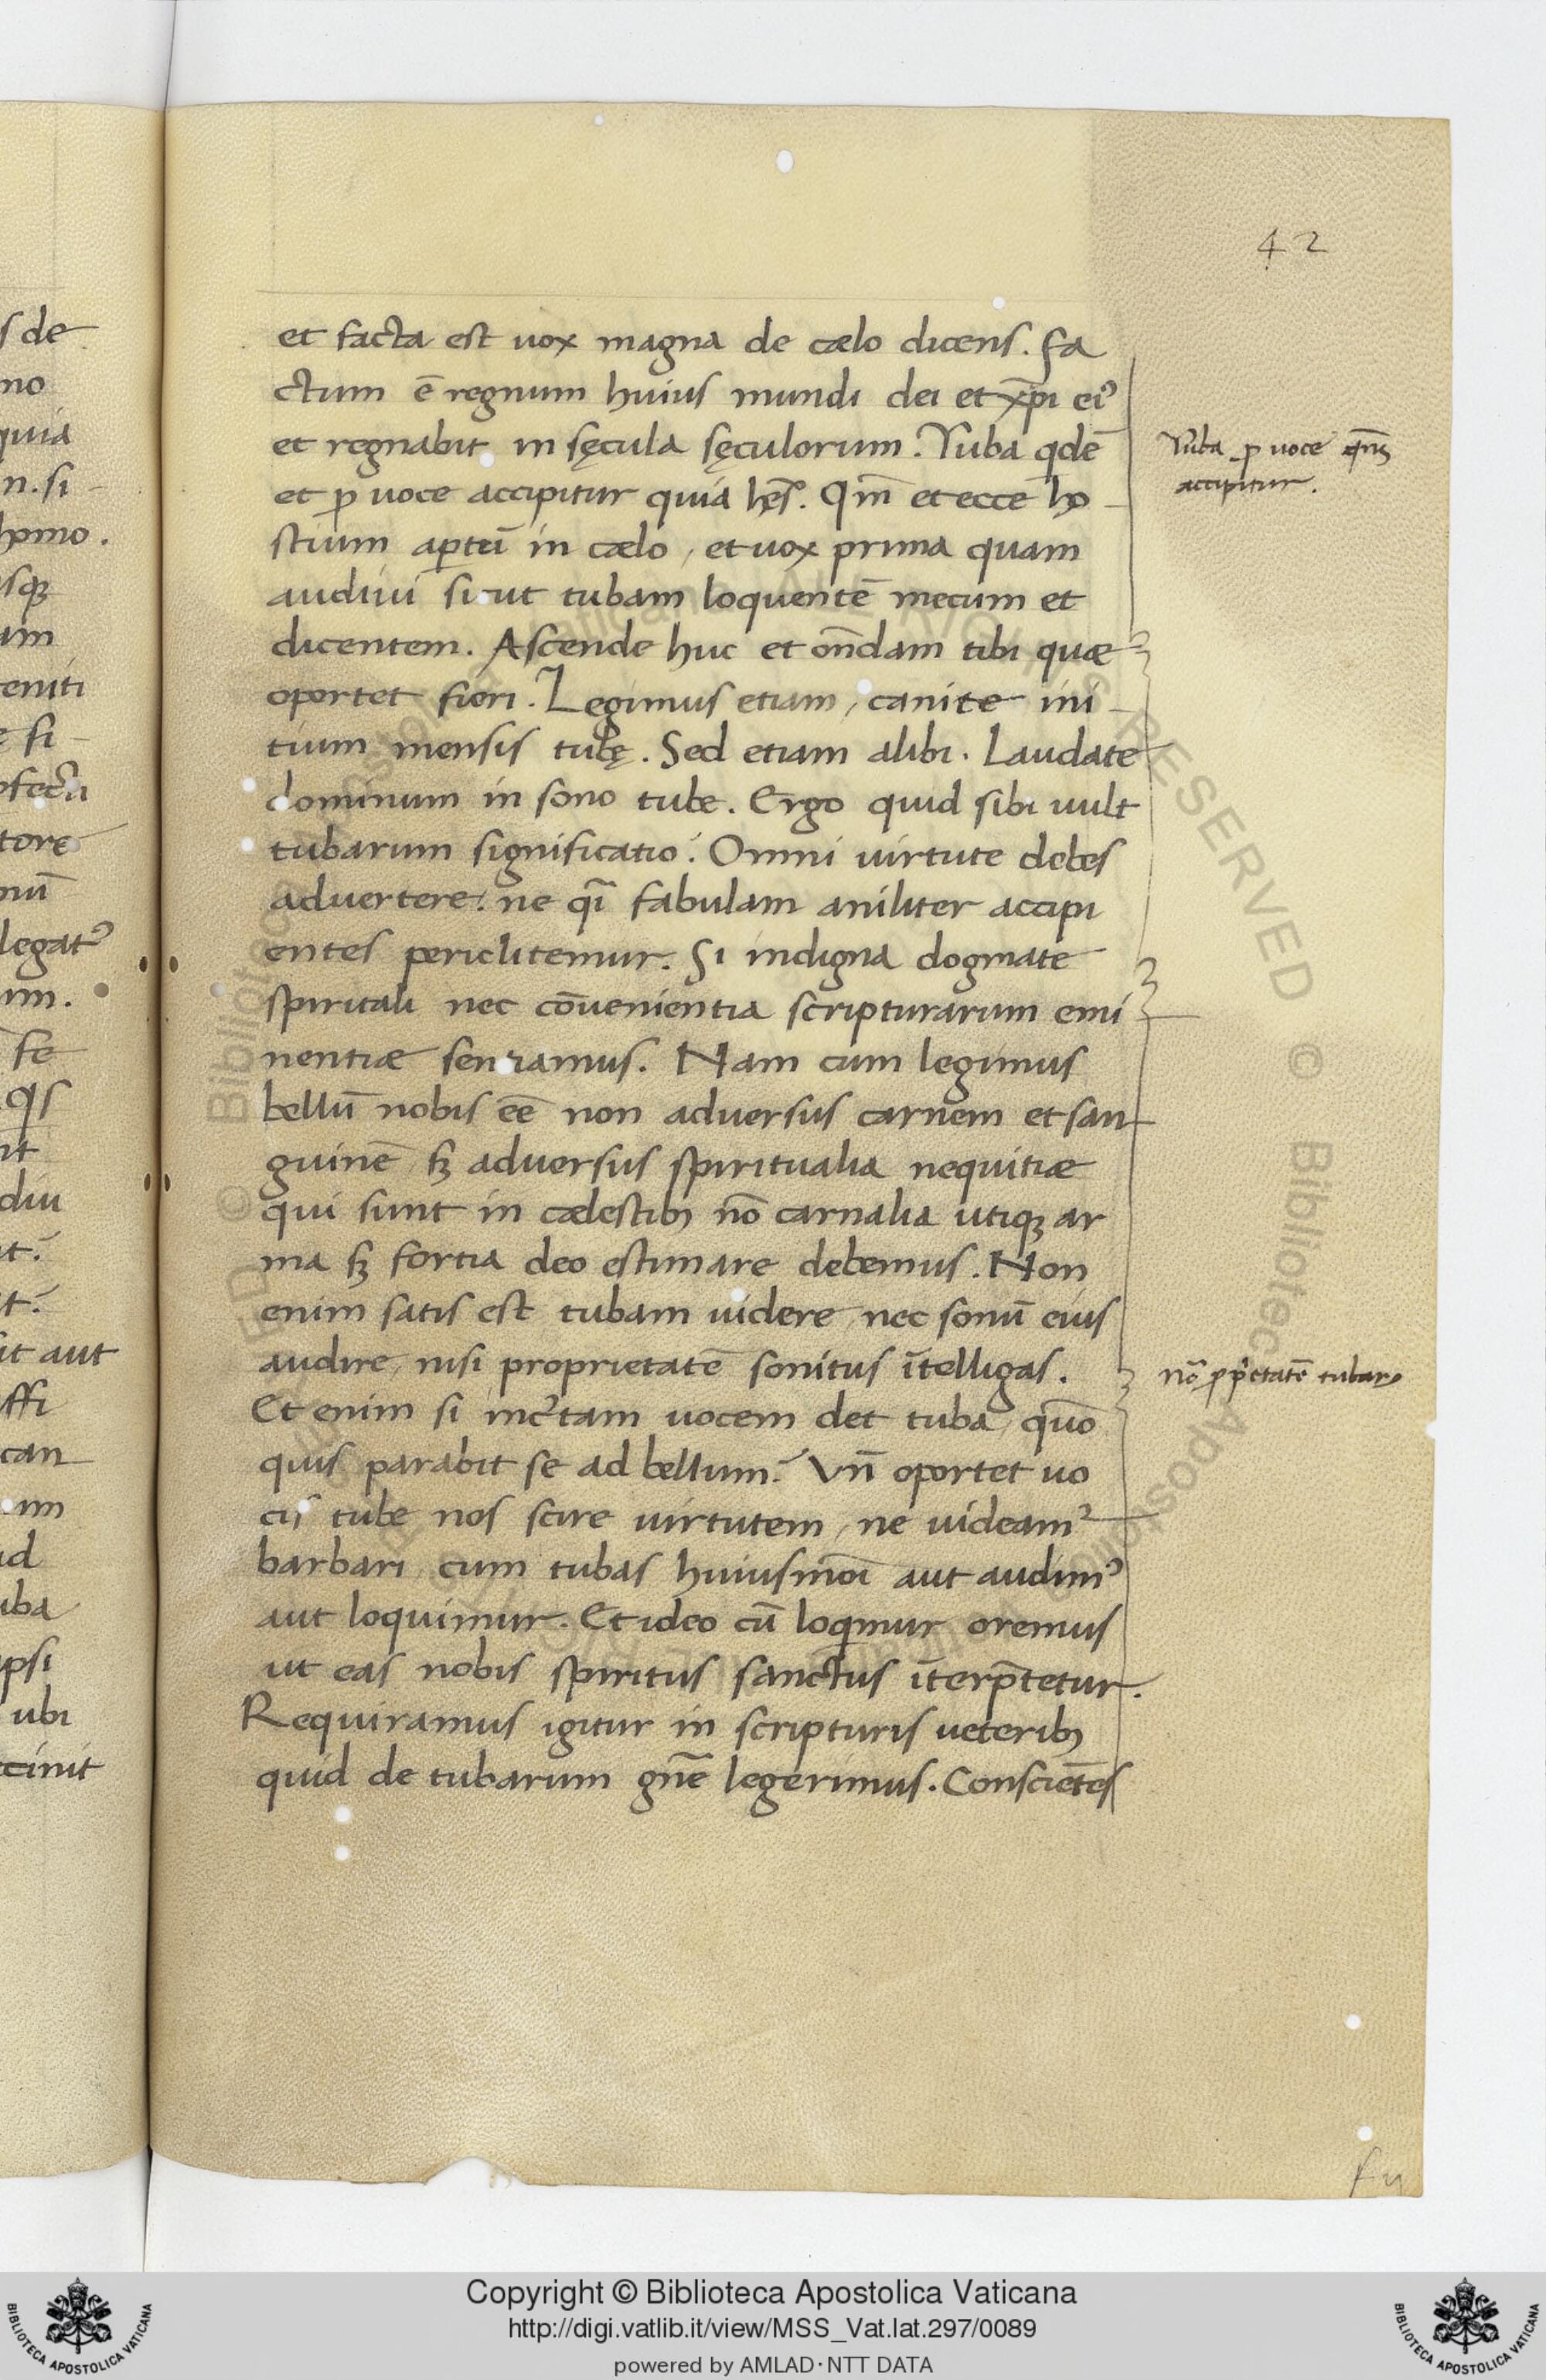 42
et facta est uox magna de cælo dicens. fa
ctum ē regnum huius mundi dei et xp̄i eiꝰ
et regnabit in sęcula sęculorum. Tuba qdē
et ꝓ uoce accipitur quia hẽs. Qm̄ et ecce ho
stium aptū in cælo, et uox prima quam
audiui sicut tubam loquentē mecum et
dicentem. Ascende huc et on̄dam tibi quæ
oportet fieri. Legimus etiam, canite ini
tium mensis tubę. Sed etiam alibi. Laudate
dominum in sono tube. Ergo quid sibi uult
tubarum significatio? Omni uirtute debes
aduertere. ne q̄i fabulam aniliter accipi
entes periclitemur. Si indigna dogmate
spiritali nec cōuenientia scripturarum emi
nentiæ sentiamus. Nam cum legimus
bellū nobis eē non aduersus carnem et san
guinē sꝫ aduersus spiritualia nequitiæ
qui sunt in cælestibꝫ nō carnalia utiqꝫ ar
ma sꝫ fortia deo estimare debemus. Non
enim satis est tubam uidere, nec sonū eius
audire, nisi proprietatē sonitus ītelligas.
Et enim si inc̾tam uocem det tuba, quō
quis parabit se ad bellum? Vn̄ oportet uo
cis tube nos scire uirtutem, ne uideamꝰ
barbari, cum tubas huiusmōi aut audimꝰ
aut loquimur. Et ideo cū loqmur oremus
ut eas nobis spiritus sanctus īterp̄tetur.
Requiramus igitur in scripturis ueteribꝫ
quid de tubarum gn̄e legerimus. Consciētes
Tuba ꝓ uoce
accipitur.
nō ꝓp̍etatē tubaꝝ
s de
no
quia
n. si
homo.
sqꝫ
um
eniti
e fi
ofectu
tore
nū
legatꝰ
im.
fe
qs
it
diu
t?
t?
it aut
ffi
can
im
id
uba
ipsi
ubi
ccinit
© Biblioteca Apostolica Vaticana ALL RIGHTS RESERVED
Copyright © Biblioteca Apostolica Vaticana
http://digi.vatlib.it/view/MSS_Vat.lat.297/0089
powered by AMLAD·NTT DATA
BIBLIOTECA APOSTOLICA VATICANA
BIBLIOTECA APOSTOLICA VATICANA